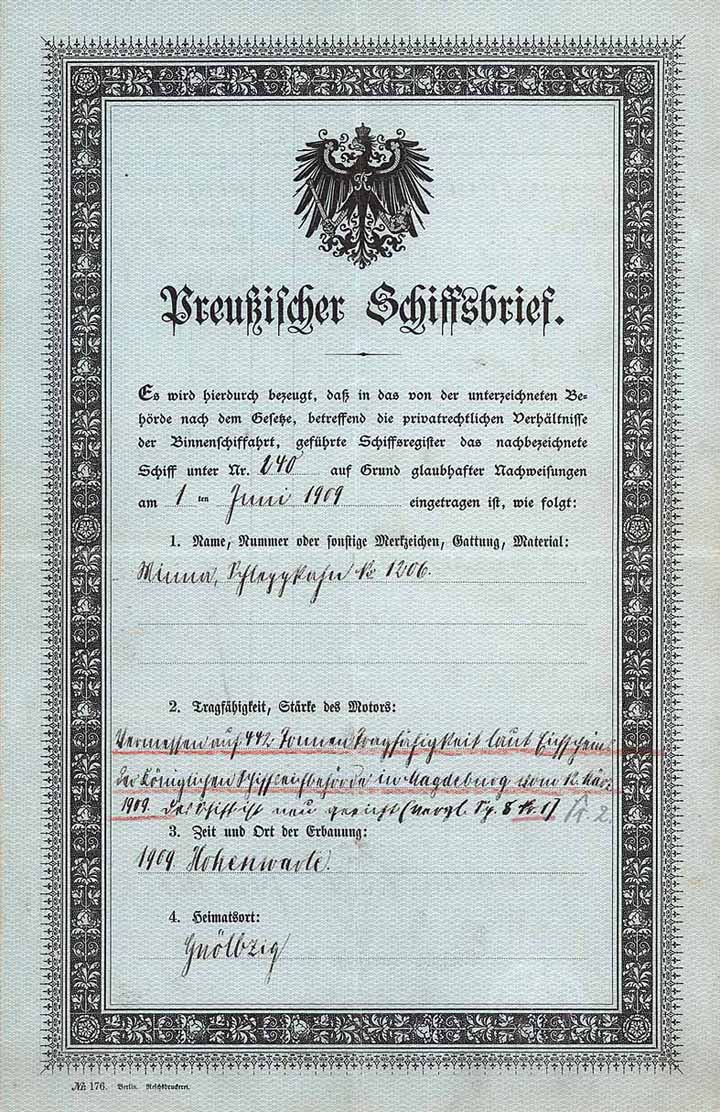 Preußischer Schiffsbrief.
Es wird hierdurch bezeugt, daß in das von der unterzeichneten Be-
hörde nach dem Gesetze, betreffend die privatrechtlichen Verhältnisse
der Binnenschiffahrt, geführte Schiffsregister das nachbezeichnete
Schiff unter Nr. 240 auf Grund glaubhafter Nachweisungen
am 1 ten Juni 1909 eingetragen ist, wie folgt:
1. Name, Nummer oder sonstige Merkzeichen, Gattung, Material:
Minna, Schleppkahn No 1206.
2. Tragfähigkeit, Stärke des Motors:
Vermessen auf 442 Tonnen Tragfähigkeit laut Eichschein
der Königlichen Schiffseichbehörde in Magdeburg vom 12. März
1909. Das Schiff ist neu geeicht (vergl. Sp. 8 No 1)
3. Zeit und Ort der Erbauung:
1909 Hohenwarte.
4. Heimatsort:
Gnölbzig
№ 176. Berlin. Reichsdruckerei.